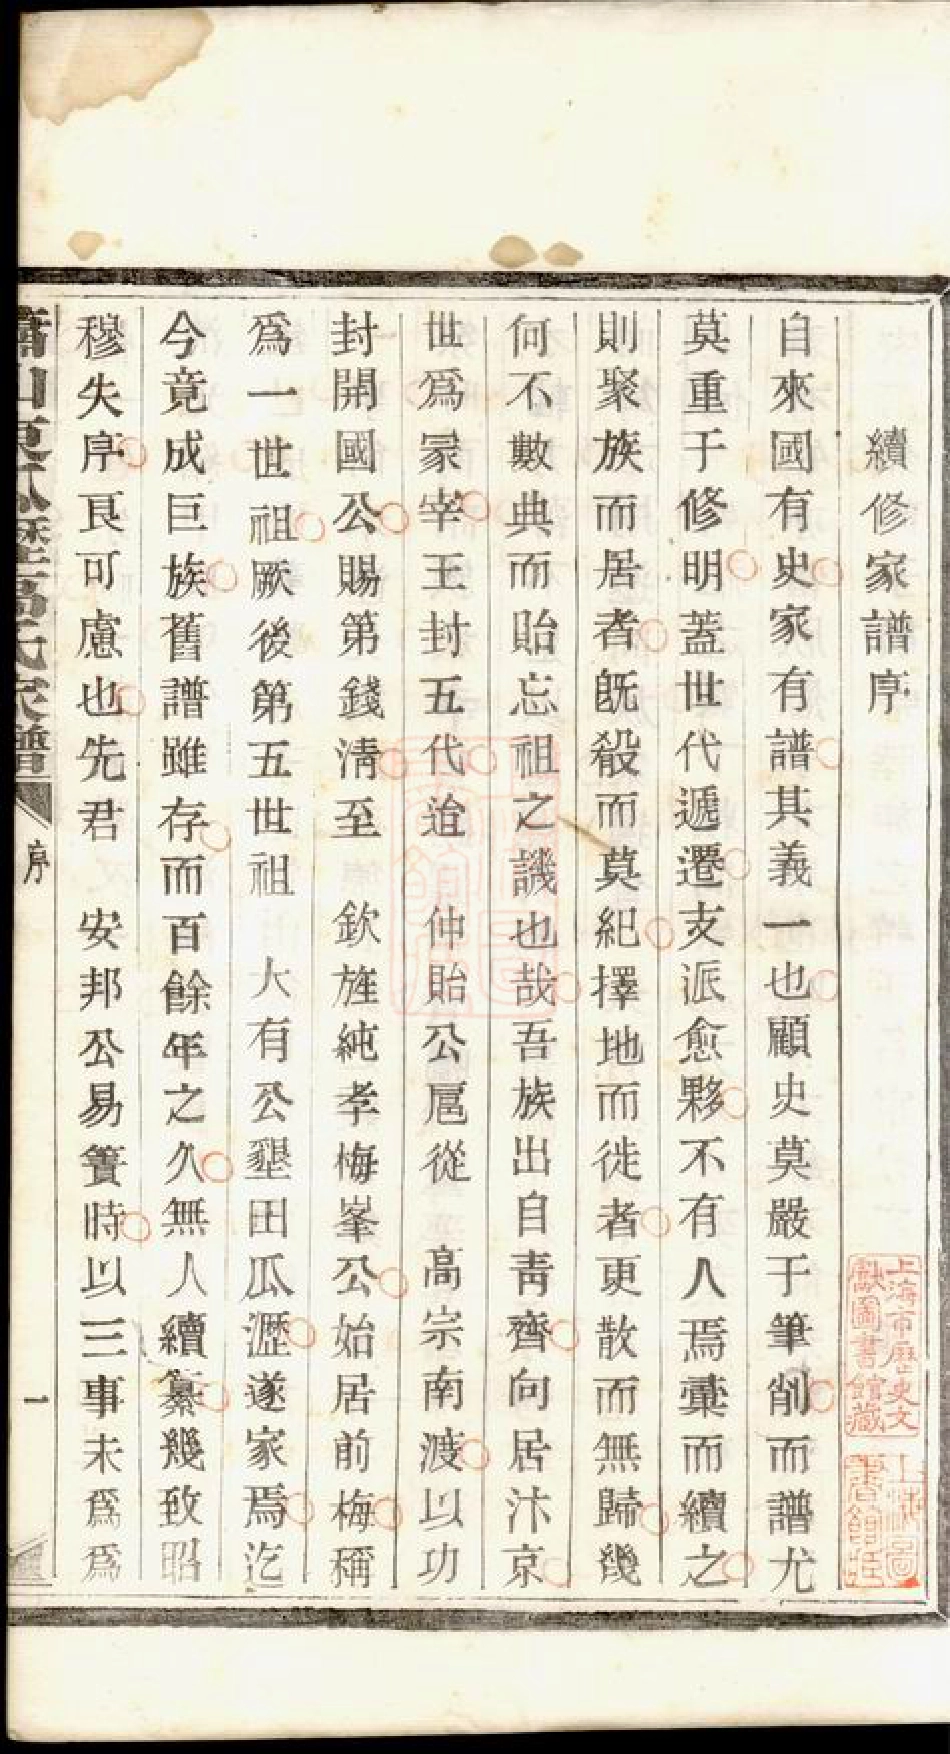 續修家譜序
自來國有史家有譜其義一也顧史莫嚴于筆削而譜尤
莫重于修明蓋世代遞遷支派愈夥不有人焉彙而續之
則聚族而居者旣殽而莫紀擇地而徙者更散而無歸幾
何不數典而貽忘祖之譏也哉吾族出自靑齊向居汴京
世爲冢宰王封五代迨 仲貽公扈從 高宗南渡以功
封開國公賜第錢淸至 欽旌純孝梅峯公始居前梅稱
爲一世祖厥後第五世祖 大有公墾田瓜瀝遂家焉迄
今竟成巨族舊譜雖存而百餘年之久無人續纂幾致昭
穆失序良可慮也先君 安邦公易簀時以三事未爲爲
蕭山 瀝高氏家譜
序
一
上海市歷史文
獻圖書館藏
上海圖
書館藏